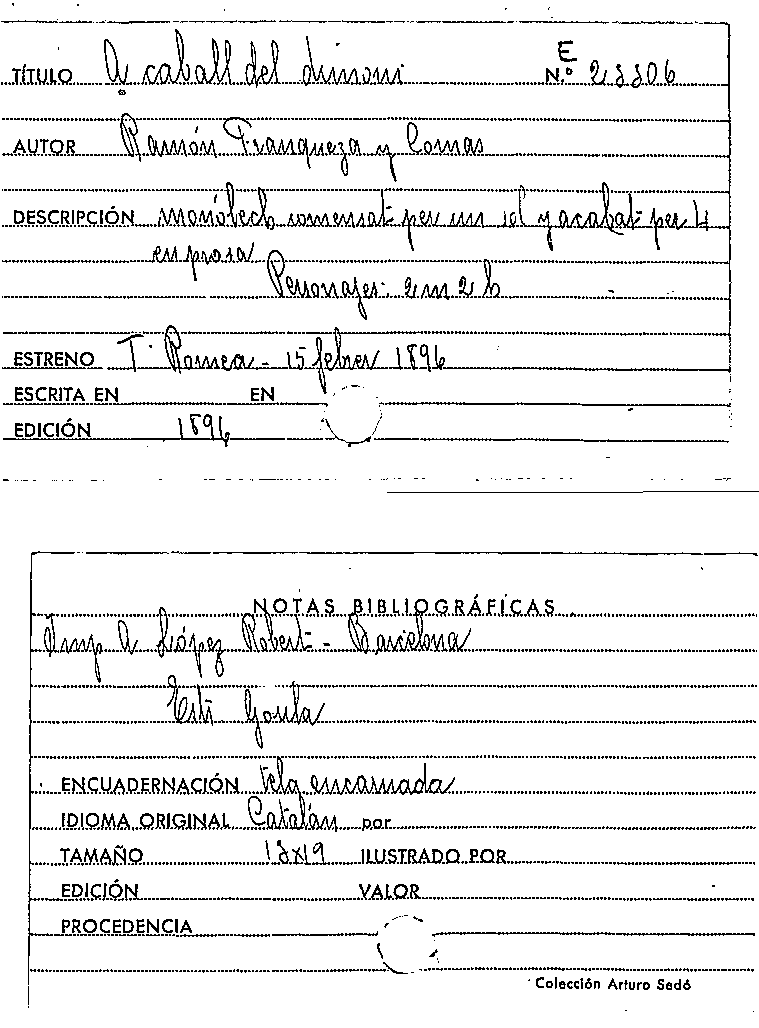 TÍTULO A caball del dimoni E N.º 23306
AUTOR Ramón Franqueza y Comas
DESCRIPCIÓN comensat per un sol y acabat per 4
en prosa
Personajes: 2 m 2 h
ESTRENO T. Romea - 15 febrer 1896
ESCRITA EN EN
EDICIÓN 1896
NOTAS BIBLIOGRÁFICAS
Imp A López Robert - Barcelona
Goula
ENCUADERNACIÓN tela encarnada
IDIOMA ORIGINAL Catalán por
TAMAÑO 13x19 ILUSTRADO POR
EDICIÓN VALOR
PROCEDENCIA
Colección Arturo Sedó